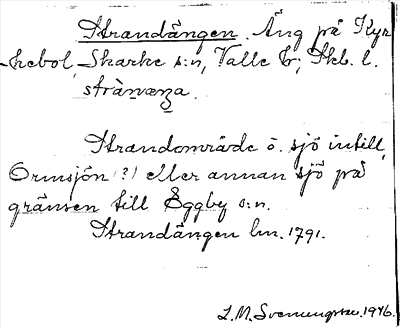 Strandängen. Äng på Kyr
kebol, Skarke s:n, Valle hr; Skb. l.
stràn̠æŋa.
Strandområde ö. sjö intill
Ormsjön (?) eller annan sjö på
gränsen till Eggby s:n.
Strandängen lm. 1791.
L.M. Svenungsson. 1946.